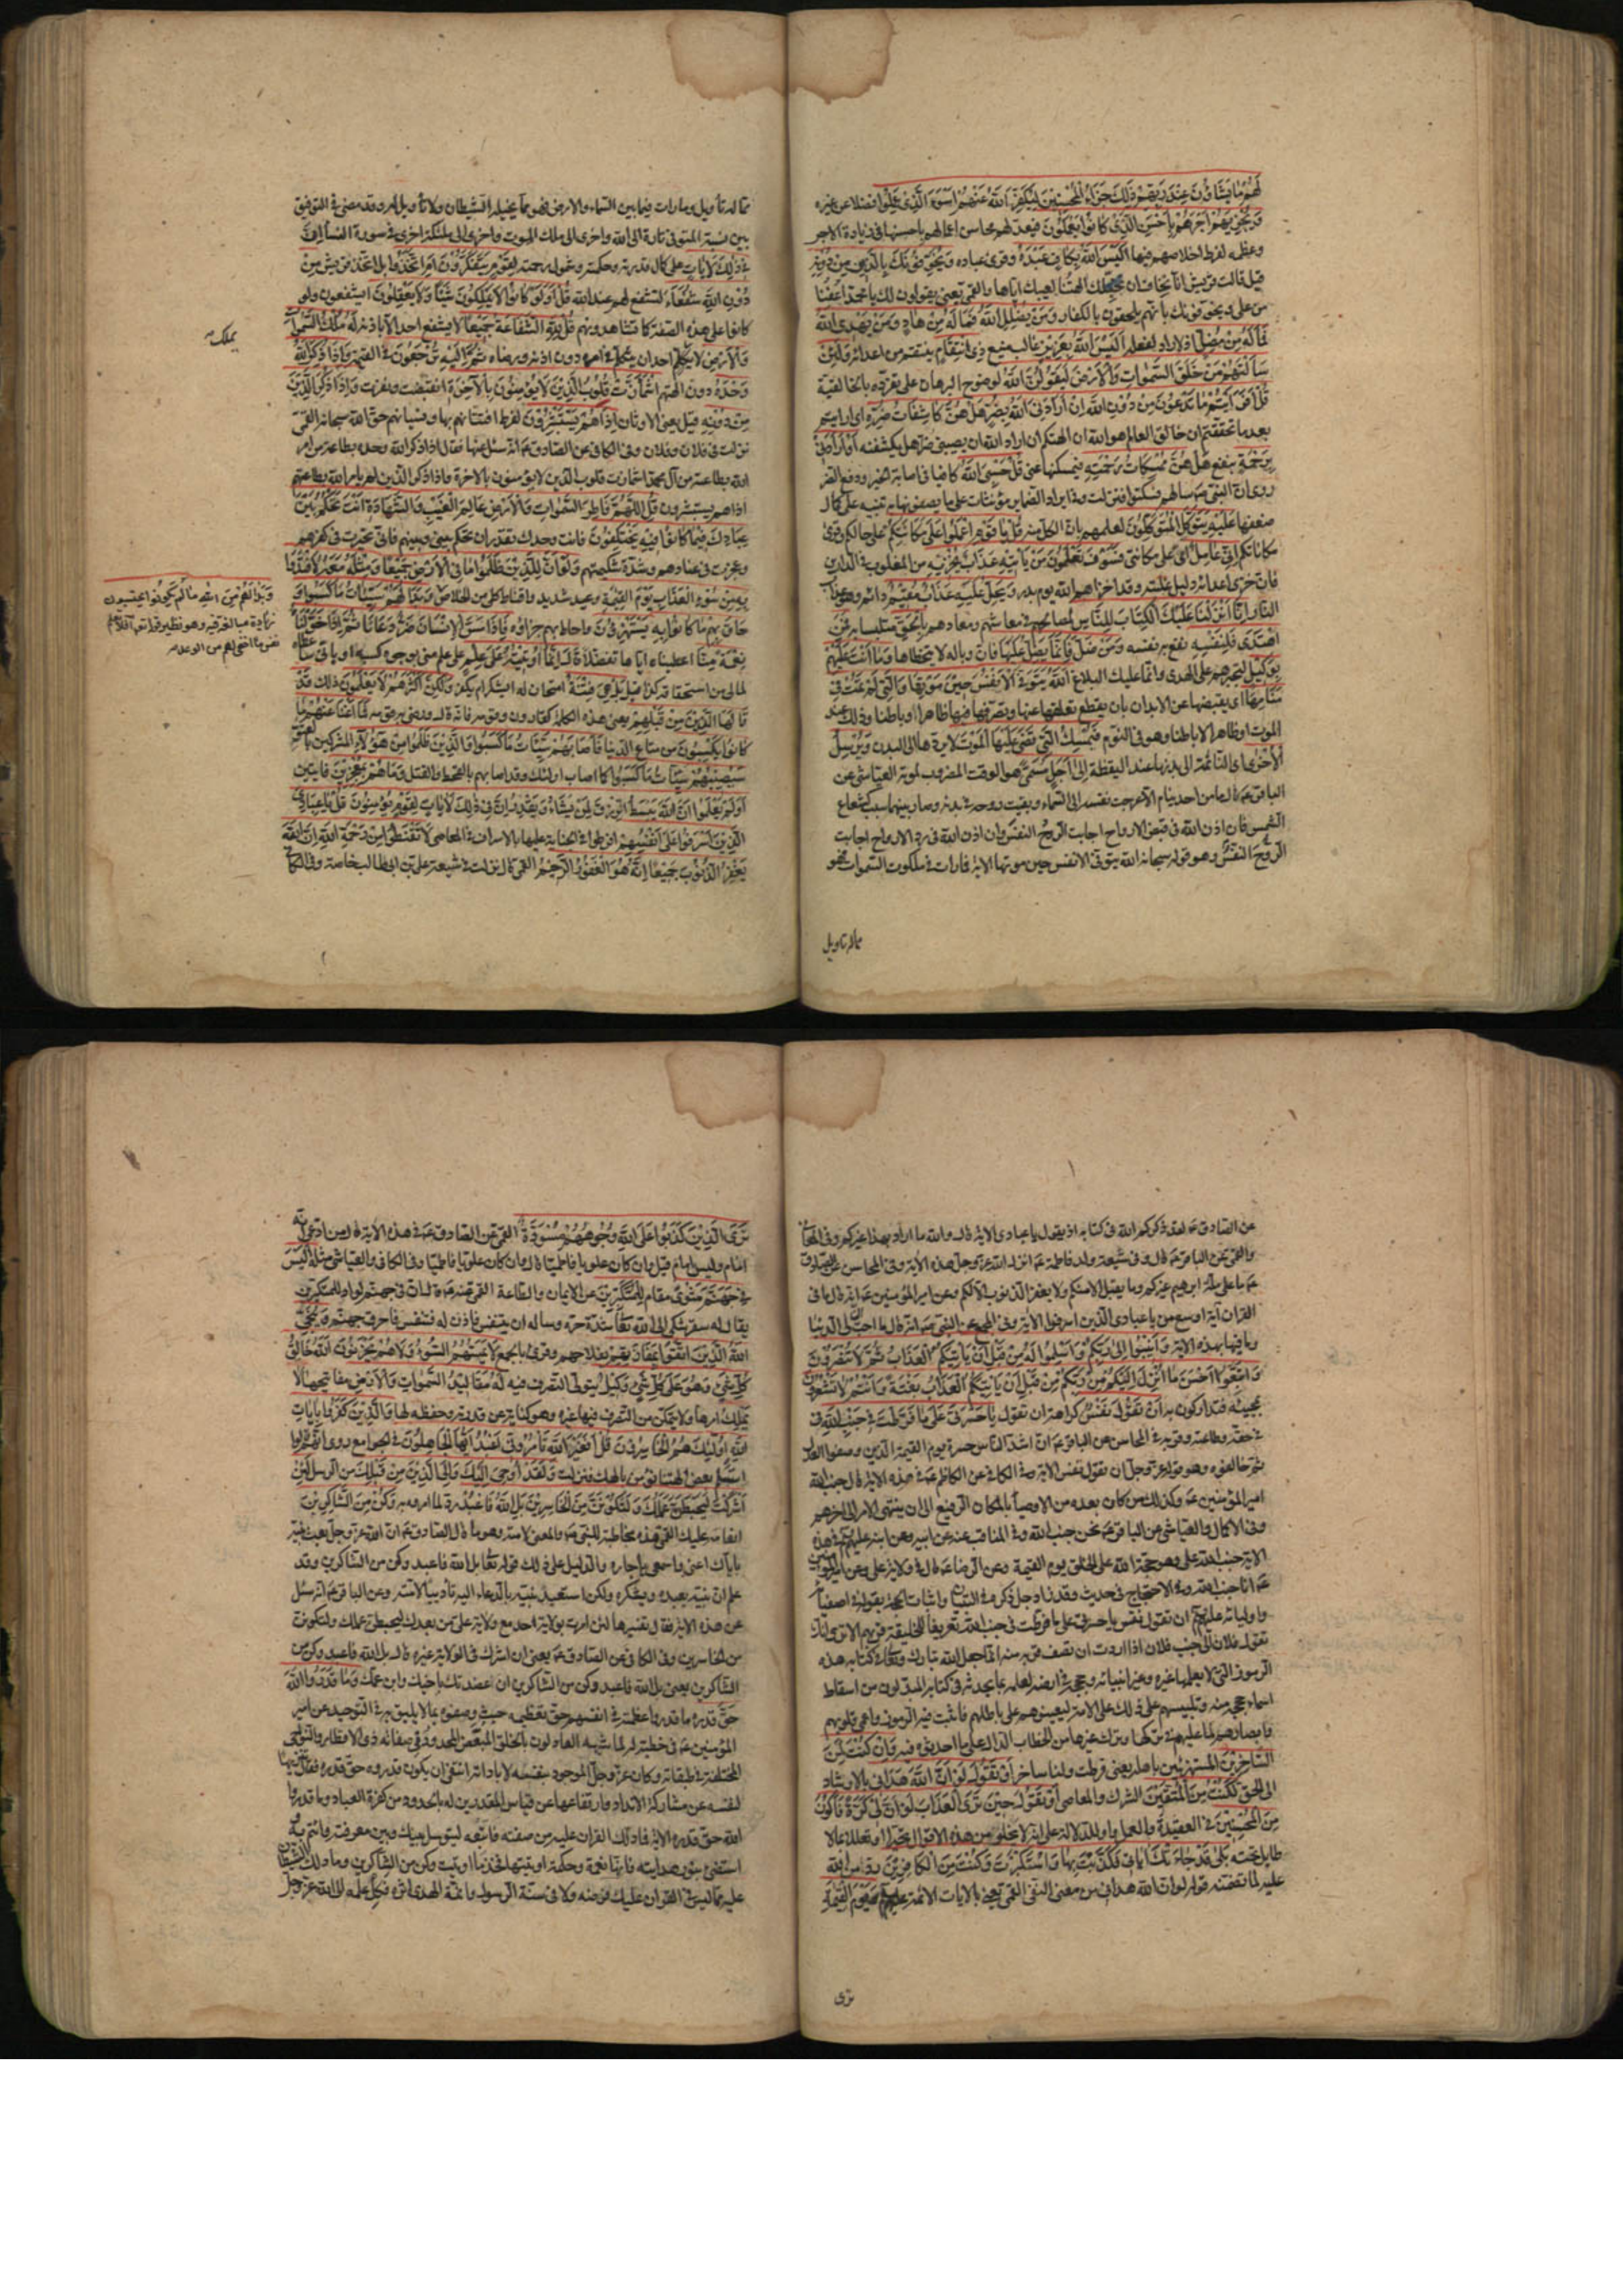 لَهُمْ مَا يَشَاؤُنَ عِنْدَ رَبِّهِمْ ذٰلِكَ جَزَاءُ الْمُحْسِنِينَ لِيُكَفِّرَ اللَّهُ عَنْهُمْ أَسْوَءَ الَّذِي عَمِلُوا فضلا عن غيره
وَيَجْزِيَهُمْ أَجْرَهُمْ بِأَحْسَنِ الَّذِي كَانُوا يَعْمَلُونَ فيعد لهم محاسن اعمالهم باحسنها في زيادة الاجر
وعظمه لفرط اخلاصهم فيها أَلَيْسَ اللَّهُ بِكَافٍ عَبْدَهُ وقرئ عباده وَيُخَوِّفُونَكَ بِالَّذِينَ مِنْ دُونِهِ
قيل قالت قريش انا نخاف ان تخبلك الهتنا لعيبك اياها والقمي يعني يقولون لك يا محمد اعفنا
من علي ويخوفونك بانهم يلحقون بالكفار وَمَنْ يُضْلِلِ اللَّهُ فَمَا لَهُ مِنْ هَادٍ وَمَنْ يَهْدِي اللَّهُ
فَمَا لَهُ مِنْ مُضِلٍّ اذ لا راد لفعله أَلَيْسَ اللَّهُ بِعَزِيزٍ غالب منيع ذِي انْتِقَامٍ ينتقم من اعدائه وَلَئِنْ
سَأَلْتَهُمْ مَنْ خَلَقَ السَّمٰوَاتِ وَالْأَرْضَ لَيَقُولُنَّ اللَّهُ لوضوح البرهان على تفرده بالخالقية
قُلْ أَفَرَأَيْتُمْ مَا تَدْعُونَ مِنْ دُونِ اللَّهِ إِنْ أَرَادَنِيَ اللَّهُ بِضُرٍّ هَلْ هُنَّ كَاشِفَاتُ ضُرِّهِ اي ارايتم
بعد ما تحققتم ان خالق العالم هو الله ان الهتكم ان اراد الله ان يصيبني ضرا هل يكشفنه أَوْ أَرَادَنِي
بِرَحْمَةٍ بنفع هَلْ هُنَّ مُمْسِكَاتُ رَحْمَتِهِ فيمسكنها عني قُلْ حَسْبِيَ اللَّهُ كافيا في اصابة الخير ودفع الضر
روي ان النبي ص سالهم فسكتوا فنزلت وفي ايراد الضماير مؤنثات على ما يصفونها به تنبيه على كمال
ضعفها عَلَيْهِ يَتَوَكَّلُ الْمُتَوَكِّلُونَ لعلمهم بان الكل منه قُلْ يَا قَوْمِ اعْمَلُوا عَلَى مَكَانَتِكُمْ على حالكم وقرئ
مكاناتكم إِنِّي عَامِلٌ اي على مكانتي فَسَوْفَ تَعْلَمُونَ مَنْ يَأْتِيهِ عَذَابٌ يُخْزِيهِ من المغلوب في الدارين
فان خزي اعدائه دليل غلبته وقد اخزاهم الله يوم بدر وَيَحِلُّ عَلَيْهِ عَذَابٌ مُقِيمٌ دائم وهو عذاب
النار إِنَّا أَنْزَلْنَا عَلَيْكَ الْكِتَابَ لِلنَّاسِ لمصالحهم في معاشهم ومعادهم بِالْحَقِّ متلبسا به فَمَنِ
اهْتَدَى فَلِنَفْسِهِ نفع به نفسه وَمَنْ ضَلَّ فَإِنَّمَا يَضِلُّ عَلَيْهَا فان وباله لا يتخطاها وَمَا أَنْتَ عَلَيْهِمْ
بِوَكِيلٍ لتجبرهم على الهدى وانما عليك البلاغ اللَّهُ يَتَوَفَّى الْأَنْفُسَ حِينَ مَوْتِهَا وَالَّتِي لَمْ تَمُتْ فِي
مَنَامِهَا اي يقبضها عن الابدان بان يقطع تعلقها عنها وتصرفها فيها ظاهرا او باطنا وذلك عند
الموت او ظاهرا لا باطنا وهو في النوم فَيُمْسِكُ الَّتِي قَضَى عَلَيْهَا الْمَوْتَ لا يردها الى البدن وَيُرْسِلُ
الْأُخْرَى اي النائمة الى بدنها عند اليقظة إِلَى أَجَلٍ مُسَمًّى هو الوقت المضروب لموته العياشي عن
الباقر ع قال ما من احد ينام الا عرجت نفسه الى السماء وبقيت روحه في بدنه وصار بينهما سبب كشعاع
الشمس فان اذن الله في قبض الارواح اجابت الروح النفس وان اذن الله في رد الارواح اجابت
الروح النفس وهو قوله سبحانه الله يتوفى الانفس حين موتها الاية فما رات في ملكوت السموات فهو
مما له تاويل
مما له تأويل وما رات فيما بين السماء والارض فهو مما يخيله الشيطان ولا تأويل له وقد مضى في التوفيق
بين نسبة التوفي تارة الى الله واخرى الى ملك الموت واخرى الى ملئكة اخرى في سورة النساء إِنَّ
فِي ذٰلِكَ لَآيَاتٍ على كمال قدرته وحكمته وشمول رحمته لِقَوْمٍ يَتَفَكَّرُونَ أَمِ اتَّخَذُوا بل اتخذ قريش مِنْ
دُونِ اللَّهِ شُفَعَاءَ تشفع لهم عند الله قُلْ أَوَلَوْ كَانُوا لَا يَمْلِكُونَ شَيْئًا وَلَا يَعْقِلُونَ ايشفعون ولو
كانوا على هذه الصفة كما تشاهدونهم قُلْ لِلَّهِ الشَّفَاعَةُ جَمِيعًا لا يشفع احد الا باذنه لَهُ مُلْكُ السَّمٰوَاتِ
وَالْأَرْضِ لا يملك احد ان يتكلم في امره دون اذنه ورضاه ثُمَّ إِلَيْهِ تُرْجَعُونَ في القيمة وَإِذَا ذُكِرَ اللَّهُ
وَحْدَهُ دون الهتهم اشْمَأَزَّتْ قُلُوبُ الَّذِينَ لَا يُؤْمِنُونَ بِالْآخِرَةِ انقبضت ونفرت وَإِذَا ذُكِرَ الَّذِينَ
مِنْ دُونِهِ قيل يعني الاوثان إِذَا هُمْ يَسْتَبْشِرُونَ لفرط افتتانهم بها ونسيانهم حق الله سبحانه القمي
نزلت في فلان وفلان وفي الكافي عن الصادق ع انه سئل عنها فقال اذا ذكر الله وحده بطاعة من امر
الله بطاعته من آل محمد اشمازت قلوب الذين لا يؤمنون بالاخرة واذا ذكر الذين لم يامر الله بطاعتهم
اذا هم يستبشرون قُلِ اللَّهُمَّ فَاطِرَ السَّمٰوَاتِ وَالْأَرْضِ عَالِمَ الْغَيْبِ وَالشَّهَادَةِ أَنْتَ تَحْكُمُ بَيْنَ
عِبَادِكَ فِيمَا كَانُوا فِيهِ يَخْتَلِفُونَ فانت وحدك تقدر ان تحكم بيني وبينهم فاني تحيرت في كفرهم
وعجزت في عنادهم وشدة شكيمتهم وَلَوْ أَنَّ لِلَّذِينَ ظَلَمُوا مَا فِي الْأَرْضِ جَمِيعًا وَمِثْلَهُ مَعَهُ لَافْتَدَوْا
بِهِ مِنْ سُوءِ الْعَذَابِ يَوْمَ الْقِيٰمَةِ وعيد شديد واقناط كلي من الخلاص وَبَدَا لَهُمْ سَيِّئَاتُ مَا كَسَبُوا وَ
حَاقَ بِهِمْ مَا كَانُوا بِهِ يَسْتَهْزِؤُنَ واحاط بهم جزاؤه فَإِذَا مَسَّ الْإِنْسَانَ ضُرٌّ دَعَانَا ثُمَّ إِذَا خَوَّلْنَاهُ
نِعْمَةً مِنَّا اعطيناه اياها تفضلا قَالَ إِنَّمَا أُوتِيتُهُ عَلَى عِلْمٍ على علم مني بوجوه كسبه او باني ساعطاه
لما لي من استحقاقه كذا قيل بَلْ هِيَ فِتْنَةٌ امتحان له ايشكر ام يكفر وَلٰكِنَّ أَكْثَرَهُمْ لَا يَعْلَمُونَ ذلك قَدْ
قَالَهَا الَّذِينَ مِنْ قَبْلِهِمْ يعني هذه الكلمة كقارون وقومه فانه قاله ورضي به قومه فَمَا أَغْنَى عَنْهُمْ مَا
كَانُوا يَكْسِبُونَ من متاع الدنيا فَأَصَابَهُمْ سَيِّئَاتُ مَا كَسَبُوا وَالَّذِينَ ظَلَمُوا مِنْ هٰؤُلَاءِ المشركين
سَيُصِيبُهُمْ سَيِّئَاتُ مَا كَسَبُوا كما اصاب اولئك وقد اصابهم بالقحط والقتل وَمَا هُمْ بِمُعْجِزِينَ فايتين
أَوَلَمْ يَعْلَمُوا أَنَّ اللَّهَ يَبْسُطُ الرِّزْقَ لِمَنْ يَشَاءُ وَيَقْدِرُ إِنَّ فِي ذٰلِكَ لَآيَاتٍ لِقَوْمٍ يُؤْمِنُونَ قُلْ يَا عِبَادِيَ
الَّذِينَ أَسْرَفُوا عَلَى أَنْفُسِهِمْ افرطوا في الجناية عليها بالاسراف في المعاصي لَا تَقْنَطُوا مِنْ رَحْمَةِ اللَّهِ إِنَّ اللَّهَ
يَغْفِرُ الذُّنُوبَ جَمِيعًا إِنَّهُ هُوَ الْغَفُورُ الرَّحِيمُ القمي قال نزلت في شيعة علي بن ابي طالب خاصة وفي الكافي
يملك
وَبَدَا لَهُمْ مِنَ اللهِ مَا لَمْ يَكُونُوا يَحْتَسِبُونَ
زيادة مبالغة فيه وهو نظير قوله تعالى فلا تعلم
نفس ما اخفي لهم من الوعد
عن الصادق ع لقد ذكركم الله في كتابه اذ يقول يا عبادي الاية قال والله ما اراد بهذا غيركم وفي المعاني
والقمي عن الباقر ع قال وفي شيعة ولد فاطمة ع انزل الله عز وجل هذه الاية وفي المحاسن عن الصادق
ع ما على ملة ابرهيم غيركم وما يقبل الا منكم ولا يغفر الذنوب الا لكم وعن امير المؤمنين ع انه قال ما في
القران آية اوسع من يا عبادي الذين اسرفوا الاية وفي المجمع عن النبي ص انه قال ما احب ان لي الدنيا
وما فيها بهذه الاية وَأَنِيبُوا إِلَى رَبِّكُمْ وَأَسْلِمُوا لَهُ مِنْ قَبْلِ أَنْ يَأْتِيَكُمُ الْعَذَابُ ثُمَّ لَا تُنْصَرُونَ
وَاتَّبِعُوا أَحْسَنَ مَا أُنْزِلَ إِلَيْكُمْ مِنْ رَبِّكُمْ مِنْ قَبْلِ أَنْ يَأْتِيَكُمُ الْعَذَابُ بَغْتَةً وَأَنْتُمْ لَا تَشْعُرُونَ
بمجيئه فتداركون به أَنْ تَقُولَ نَفْسٌ كراهة ان تقول يَا حَسْرَتَى عَلَى مَا فَرَّطْتُ فِي جَنْبِ اللَّهِ في
في حقه وطاعته وقربه في المحاسن عن الباقر ع ان اشد الناس حسرة يوم القيمة الذين وصفوا العدل
ثم خالفوه وهو قوله عز وجل ان تقول نفس الاية وفي الكافي عن الكاظم ع في هذه الاية قال جنب الله
امير المؤمنين ع وكذلك من كان بعده من الاوصياء بالمكان الرفيع الى ان ينتهي الامر الى اخرهم
وفي الاكمال والعياشي عن الباقر ع نحن جنب الله وفي المناقب عنه عن ابيه وعن ابنه عليهم في هذه
الاية جنب الله علي وهو حجة الله على الخلق يوم القيمة وعن الرضا ع قال في ولاية علي وعن امير المؤمنين
ع انا جنب الله وفي الاحتجاج في حديث وقد زاد جل ذكره في التبيان واثبات الحجة بقوله في اصفيائه
واوليائه عليهم ان تقول نفس يا حسرتي على ما فرطت في جنب الله تعريفا للخليقة قربهم الا ترى انك
تقول فلان الى جنب فلان اذا اردت ان تصف قربه منه انما جعل الله تبارك وتعالى في كتابه هذه
الرموز التي لا يعلمها غيره وغير انبيائه وحججه في ارضه لعلمه بما يحدثه في كتابه المبدلون من اسقاط
اسماء حججه منه وتلبيسهم على ذلك على الامة ليعينوهم على باطلهم فاثبت فيه الرموز واعمى قلوبهم
وابصارهم لما عليهم في تركها وترك غيرها من الخطاب الدال على ما احدثوه فيه وَإِنْ كُنْتُ لَمِنَ
السَّاخِرِينَ المستهزئين باهله يعني فرطت وانا ساخر أَوْ تَقُولَ لَوْ أَنَّ اللَّهَ هَدَانِي بالارشاد
الى الحق لَكُنْتُ مِنَ الْمُتَّقِينَ الشرك والمعاصي أَوْ تَقُولَ حِينَ تَرَى الْعَذَابَ لَوْ أَنَّ لِي كَرَّةً فَأَكُونَ
مِنَ الْمُحْسِنِينَ في العقيدة والعمل واو للدلالة على انه لا يخلو من هذه الاقوال تحيرا او تعللا بما لا
طايل تحته بَلَى قَدْ جَاءَتْكَ آيَاتِي فَكَذَّبْتَ بِهَا وَاسْتَكْبَرْتَ وَكُنْتَ مِنَ الْكَافِرِينَ رد من الله
عليه لما تضمنه قوله لو ان الله هداني من معنى النفي القمي يعني بالايات الائمة عليهم وَيَوْمَ الْقِيٰمَةِ
ترى
تَرَى الَّذِينَ كَذَبُوا عَلَى اللَّهِ وُجُوهُهُمْ مُسْوَدَّةٌ القمي عن الصادق ع في هذه الاية قال من ادعى انه
امام وليس بامام قيل وان كان علويا فاطميا قال وان كان علويا فاطميا وفي الكافي والعياشي مثله أَلَيْسَ
فِي جَهَنَّمَ مَثْوًى مقام لِلْمُتَكَبِّرِينَ عن الايمان والطاعة القمي عنه ع قال ان في جهنم لواد للمتكبرين
يقال له سقر شكى الى الله تعالى شدة حره وساله ان يتنفس فاذن له فتنفس فاحرق جهنم وَيُنَجِّي
اللَّهُ الَّذِينَ اتَّقَوْا بِمَفَازَتِهِمْ بفلاحهم وقرئ بالجمع لَا يَمَسُّهُمُ السُّوءُ وَلَا هُمْ يَحْزَنُونَ اللَّهُ خَالِقُ
كُلِّ شَيْءٍ وَهُوَ عَلَى كُلِّ شَيْءٍ وَكِيلٌ يتولى التصرف فيه لَهُ مَقَالِيدُ السَّمٰوَاتِ وَالْأَرْضِ مفاتيحها لا
يملك امرها ولا يتمكن من التصرف فيها غيره وهو كناية عن قدرته وحفظه لها وَالَّذِينَ كَفَرُوا بِآيَاتِ
اللَّهِ أُولٰئِكَ هُمُ الْخَاسِرُونَ قُلْ أَفَغَيْرَ اللَّهِ تَأْمُرُونِّي أَعْبُدُ أَيُّهَا الْجَاهِلُونَ في الجوامع روي انهم قالوا
استلم بعض الهتنا نؤمن بالهك فنزلت وَلَقَدْ أُوحِيَ إِلَيْكَ وَإِلَى الَّذِينَ مِنْ قَبْلِكَ من الرسل لَئِنْ
أَشْرَكْتَ لَيَحْبَطَنَّ عَمَلُكَ وَلَتَكُونَنَّ مِنَ الْخَاسِرِينَ بَلِ اللَّهَ فَاعْبُدْ رد لما امروه به وَكُنْ مِنَ الشَّاكِرِينَ
انعامه عليك القمي هذه مخاطبة للنبي ص والمعنى لامته وهو ما قال الصادق ع ان الله عز وجل بعث نبيه
باياك اعني واسمعي يا جاره والدليل على ذلك قوله تعالى بل الله فاعبد وكن من الشاكرين وقد
علم ان نبيه يعبده ويشكره ولكن استعبد نبيه بالدعاء اليه تأديبا لامته وعن الباقر ع انه سئل
عن هذه الاية فقال تفسيرها لئن امرت بولاية احد مع ولاية علي من بعدك ليحبطن عملك ولتكونن
من الخاسرين وفي الكافي عن الصادق ع يعني ان اشركت في الولاية غيره قال بل الله فاعبد وكن من
الشاكرين يعني بل الله فاعبد وكن من الشاكرين ان اعضدتك باخيك وابن عمك وَمَا قَدَرُوا اللَّهَ
حَقَّ قَدْرِهِ ما قدروا عظمته في انفسهم حق تعظيمه حيث وصفوه بما لا يليق به في التوحيد عن امير
المؤمنين ع في خطبة له لما شبهه العادلون بالخلق المبعض المحدود في صفاته ذي الاقطار والنواحي
المختلفة في طبقاته وكان عز وجل الموجود بنفسه لا باداته انتفى ان يكون قدروه حق قدره فقال تنزيها
لنفسه عن مشاركة الانداد وارتفاعها عن قياس المقدرين له بالحدود من كفرة العباد وما قدروا
الله حق قدره الاية فما دلك القران عليه من صفته فاتبعه ليتوسل بينك وبين معرفته واتم به
استضئ بنور هدايته فانها نعمة وحكمة اوتيتها فخذ ما اوتيت وكن من الشاكرين وما دلك الشيطان
عليه مما ليس في القران عليك فرضه ولا في سنة الرسول وائمة الهدى اثره فكل علمه الى الله عز وجل